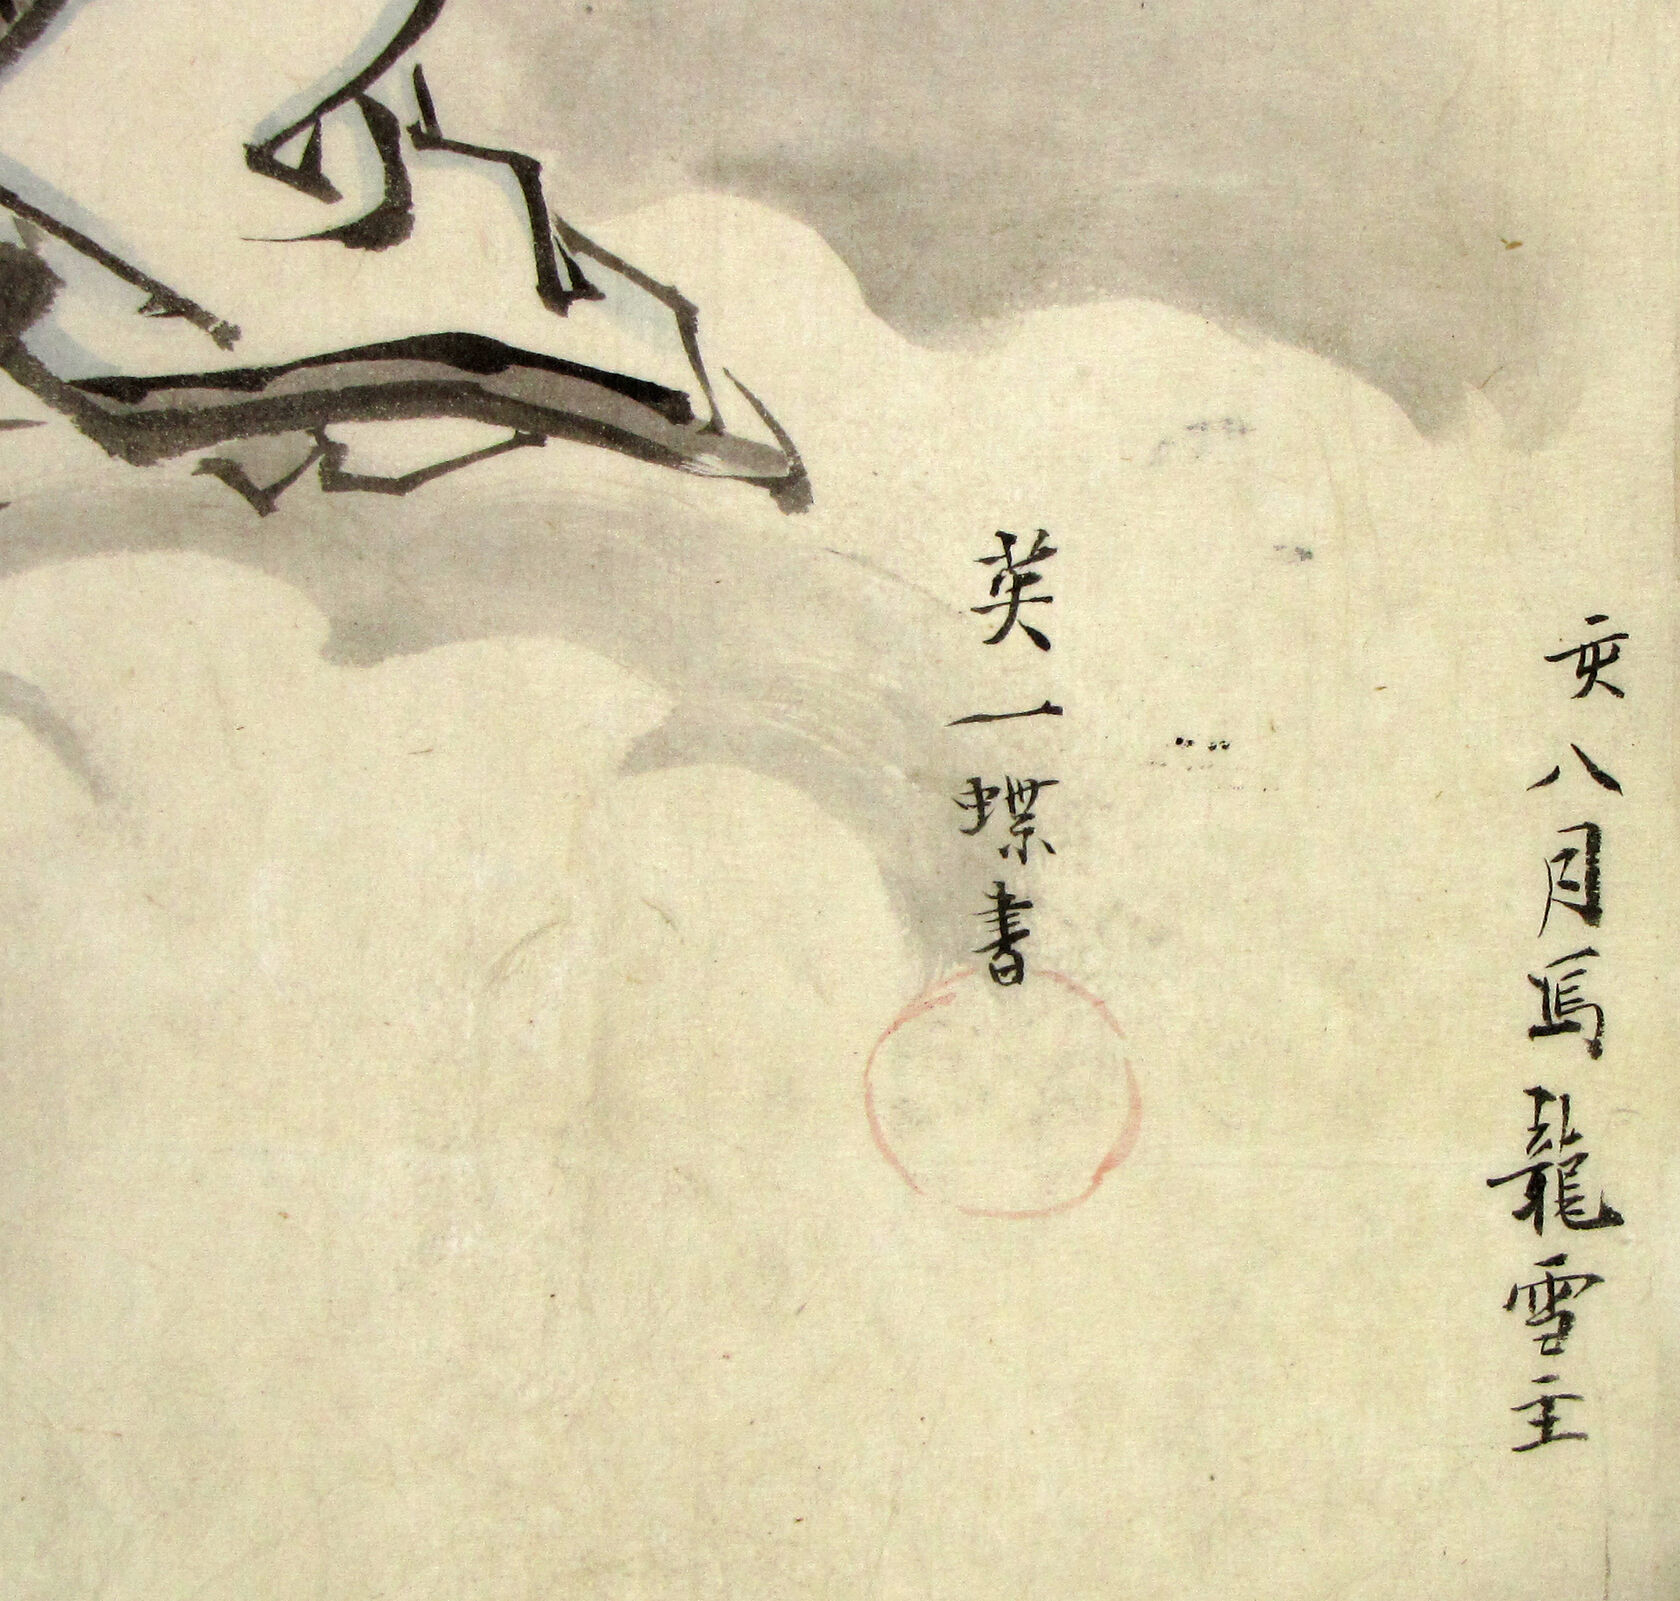 亥八月写龍雪主
英一蝶書